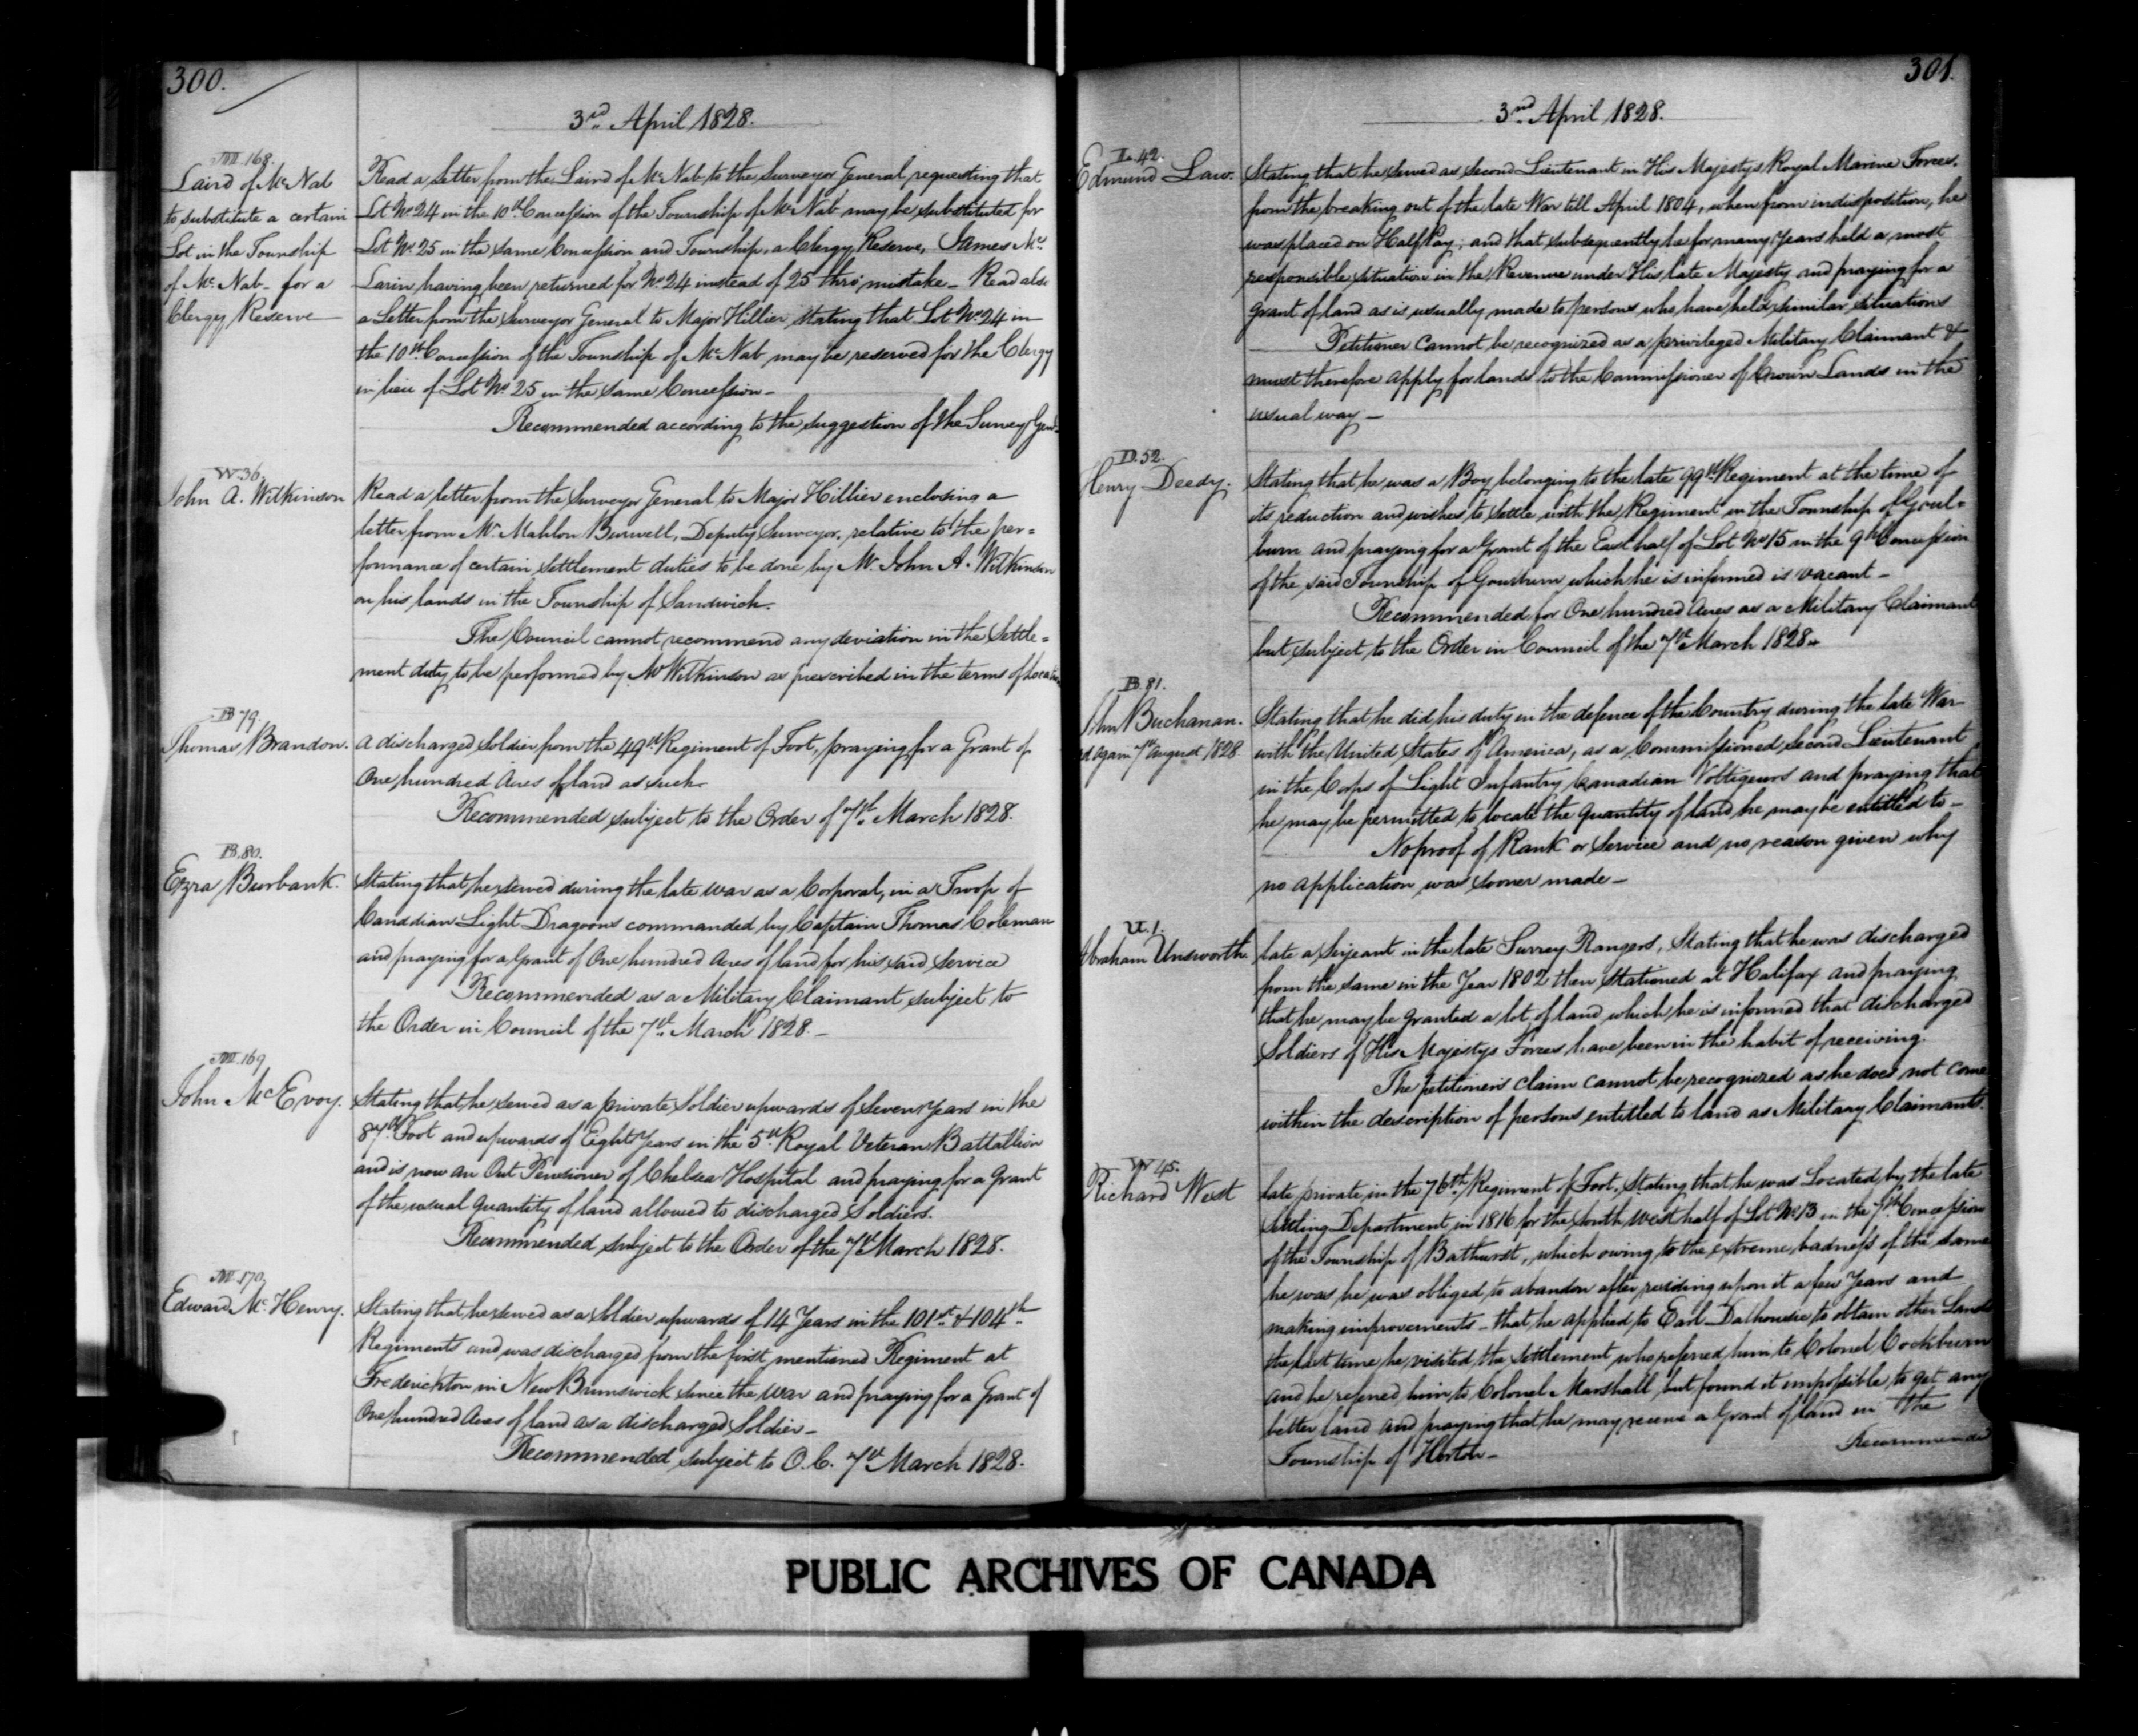 300.
3rd. April 1828.
M.168.
Laird of Mc Nab
to substitute a certain
Lot in the Township
of Mc Nab - for a
Clergy Reserve
Read a letter from the Laird of Mc Nab to the Surveyor General requesting that
Lot No 24 in the 10th Concession of the Township of Mc Nab may be substituted for
Lot No 25 in the same Concession and Township, a Clergy Reserve, James Mc
Larin having been returned for No 24 instead of 25 thro' mistake - Read also
a Letter from the Surveyor General to Major Hillier stating that Lot No 24 in
the 10th Concession of the Township of Mc Nab may be reserved for the Clergy
in lieu of Lot No 25 in the same Concession -
Recommended according to the suggestion of the Survey Genl
W.36.
John A. Wilkinson
Read a letter from the Surveyor General to Major Hillier enclosing a
letter from Mr Mahlon Burwell, Deputy Surveyor, relative to the per=
formance of certain settlement duties to be done by Mr. John A. Wilkinson
on his lands in the Township of Sandwich.
The Council cannot recommend any deviation in the Settle=
ment duty to be performed by Mr Wilkinson as prescribed in the terms of
B 79.
Thomas Brandon.
A discharged Soldier from the 49th Regiment of Foot, praying for a Grant of
One hundred Acres of land as such
Recommended subject to the Order of 7th March 1828.
B.80.
Ezra Burbank.
Stating that he served during the late war as a Corporal, in a Troop of
Canadian Light Dragoons commanded by Captain Thomas Coleman
and praying for a Grant of One hundred Acres of land for his said service
Recommended as a Military Claimant subject to
the Order in Council of the 7th March 1828. -
M.169
John McEvoy.
Stating that he served as a private Soldier upwards of Seven Years in the
87th Foot and upwards of Eight Years in the 5th Royal Veteran Battallion
and is now an Out Pensioner of Chelsea Hospital and praying for a grant
of the usual quantity of land allowed to discharged Soldiers.
Recommended subject to the Order of the 7th March 1828.
M.170
Edward Mc Henry.
Stating that he served as a Soldier upwards of 14 Years in the 101st & 104th
Regiments and was discharged from the first mentioned Regiment at
Frederickton in New Brunswick since the war and praying for a Grant of
One hundred Acres of land as a discharged Soldier -
Recommended subject to O.C. 7th March 1828.
301.
3rd April 1828.
L.42.
Edmund Law.
Stating that he served as second Lieutenant in His Majestys Royal Marine Forces.
from the breaking out of the late War till April 1804, when from indisposition, he
was placed on Half Pay; and that subsequently he for many Years held a most
responsible situation in the Revenue under His late Majesty and praying for a
grant of land as is usually made to persons who have held similar situations
Petitioner cannot be recognized as a privileged Military Claimant &
must therefore apply for lands to the Commissioner of Crown Lands in the
usual way -
D.52.
Henry Deedy.
Stating that he was a Boy belonging to the late 99th Regiment at the time of
its reduction and wishes to settle with the Regiment in the Township of Goul=
burn and praying for a Grant of the East half of Lot No 15 in the 9th Concession
of the said Township of Gourburn which he is informed is vacant -
Recommended for One hundred Acres as a Military Claimant
but subject to the Order in Council of the 7th March 1828.
B.81.
John Buchanan.
d again 7th August 1828
Stating that he did his duty in the defence of the Country during the late War
with the United States of America, as a Commissioned Second Lieutenant
in the Corps of Light Infantry Canadian Voltigeurs and praying that
he may be permitted to locate the quantity of land he may be entitled to -
No proof of Rank or Service and no reason given why
no application was sooner made -
U.1.
Abraham Unsworth.
late a Serjeant in the late Surrey Rangers, Stating that he was discharged
from the same in the Year 1802 then stationed at Halifax and praying
that he may be granted a lot of land which he is informed that discharged
Soldiers of His Majestys Forces have been in the habit of receiving.
The petitioner's claim cannot be recognized as he does not come
within the description of persons entitled to land as Military Claimants.
W 45.
Richard West
late private in the 76th Regiment of Foot, Stating that he was Located by the late
Settling Department in 1816 for the South West half of Lot No 13 in the 7th Concession
of the Township of Bathurst, which owing to the extreme badness of the same
he was he was obliged to abandon after residing upon it a few Years and
making improvements - that he applied to Earl Dalhousie to obtain other Lands
the last time he visited the settlement who referred him to Colonel Cockburn
and he referred him to Colonel Marshall but found it impossible to get any
better land and praying that he may receive a Grant of land in the
Township of Horton -
Recommended
PUBLIC ARCHIVES OF CANADA